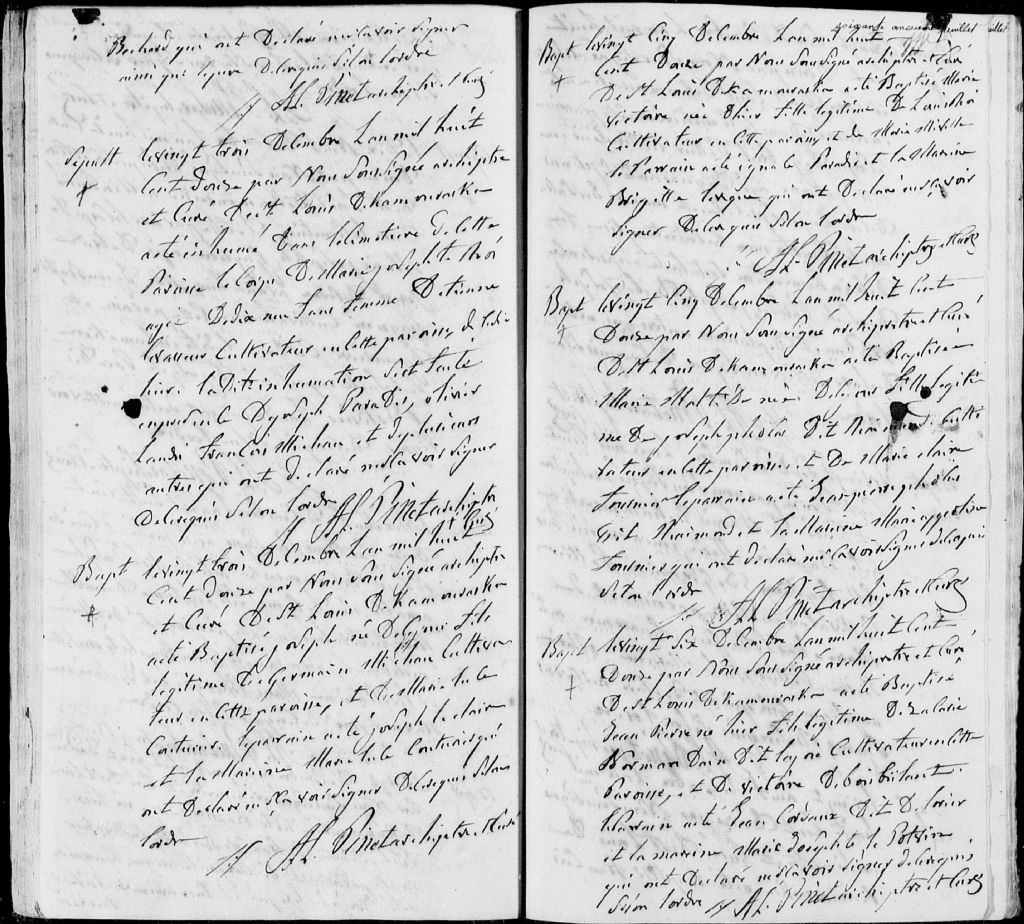 Bochard qui ont Declaré ne scavoir signer
ainsi qui le qure De ce quis Selon lordre
JH. Pinet archiptre et Curé
Sepult levingt trois Decembre Lan mil huit
Cent Douze par Nous Sousigné archiptre
et Curé De St Louis De Kamouraska
a été inhumé Dans le Cimetiere de cette
Paroisse le Corps De Marie josephte
agée De dix neuf ans femme D'etienne
levasseur Cultivateur en cette paroisse, de
hier. la Ditte inhumation S'est faite
en presence De joseph Paradis, olivier
Landri francois Michau et De plusieurs
autres qui ont declaré ne scavoir signer
De ce requis Selon lordre
JH. Pinet archiptre
et Curé
Bapt levingt trois Decembre Lan mil huit
Cent Douze par Nous Sous Signé archiptre
et Curé De St Louis De Kamouraska
a été Baptisé joseph né De ce jour fils
legitime De Germain Michau Cultiva-
teur en cette paroisse, et De Marie Lule
Couturier. le parain a été joseph le claire
et la Maraine Marie Lule Couturier qui
ont Declaré ne Scavoir Signer De ce requis Selon
lordre
JH. Pinet archiptre et Curé
soixante onzieme feuillet
Bapt levingt Cinq Decembre Lan mil huit
Cent Douze par Nous Sous Signé archiptre et Curé
De St Louis De Kamouraska a été Baptisé Marie
victoire née D'hier fille legitime De Louis
Cultivateur en cette paroisse et de Marie Miville
le Parrain a été ignace Paradis et la Maraine
Brigitte levêque qui ont Declaré ne scavoir
signer De ce requis Selon lordre
JH. Pinet archiptre et Curé
Bapt levingt Cinq Decembre Lan mil huit Cent
Douze par Nous Sous Signé archiprtre et Curé
De St Louis De Kamouraska a été Baptisée
Marie née De ce jour fille legiti-
me De joseph Dit Culti-
vateur en cette paroisse, et De Marie claire
fournier le parrain a été Jean pierre
Dit et la Maraine Marie
fournier qui ont declaré ne scavoir signer de ce requis
Selon lordre
JH. Pinet archiptre et Curé
Bapt levingt Six Decembre Lan mil huit Cent
Douze par Nous Sous Signé archiprtre et Curé
De St Louis De Kamouraska a été Baptisé
Jean Pierre né hier fils legitime De Zalarie
Normandain Dit lajoie Cultivateur en cette
Paroisse, et De victoire De bois brilant.
le Parrain a été Jean Cordeaux Dit De lorier
et la maraine Marie Josephte le Potvin
qui ont Declaré ne scavoir signer de ce requis
Selon lordre JH. Pinet archiptre et Curé